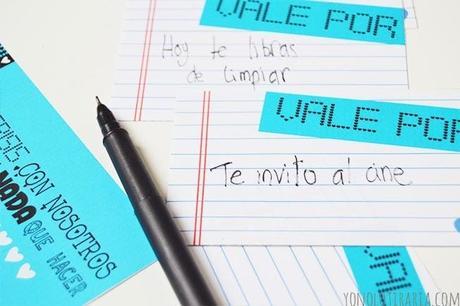 VALE POR
Hoy te libras
de limpiar
VALE POR
Te invito al cine
CON NOSOTROS
NADA QUE HACER
VALE
YONOLOTIRARIA.COM